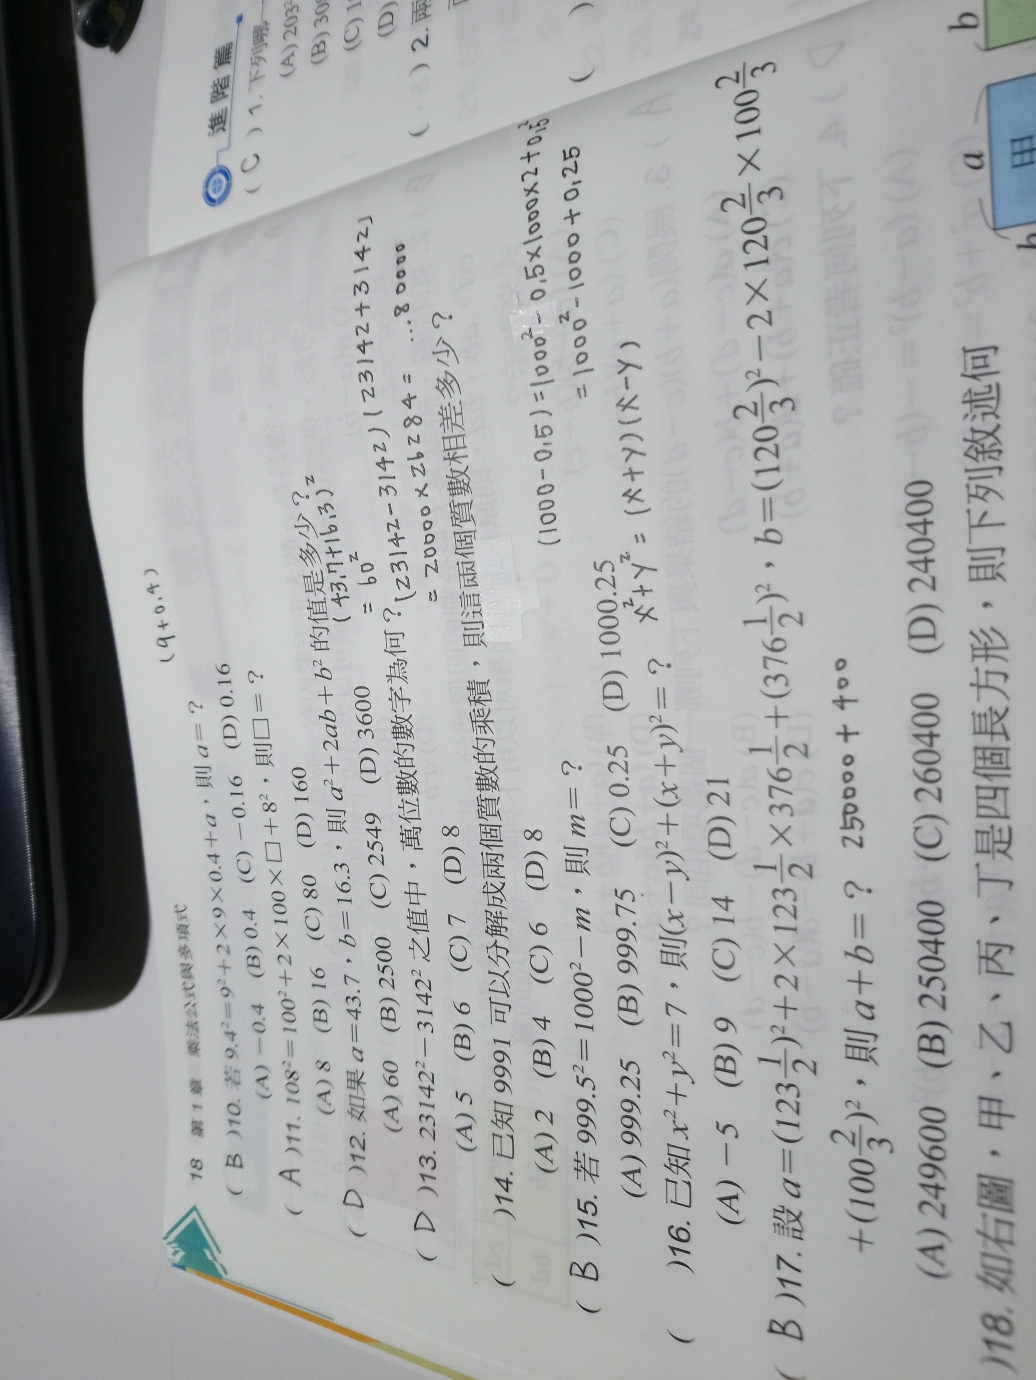 18 第1章 乘法公式與多項式
(9+0.4)
( B )10. 若 9.4²=9²+2×9×0.4+a，則 a=？
(A)－0.4 (B) 0.4 (C)－0.16 (D) 0.16
( A )11. 108²=100²+2×100×□+8²，則□=？
(A) 8 (B) 16 (C) 80 (D) 160
( D )12. 如果 a=43.7，b=16.3，則 a²+2ab+b² 的值是多少？
(43.7+16.3)²
= 60²
(A) 60 (B) 2500 (C) 2549 (D) 3600
( D )13. 23142²－3142² 之值中，萬位數的數字為何？
(23142-3142)(23142+3142)
= 20000×26284= ...80000
(A) 5 (B) 6 (C) 7 (D) 8
( )14. 已知 9991 可以分解成兩個質數的乘積，則這兩個質數相差多少？
(A) 2 (B) 4 (C) 6 (D) 8
(1000-0.5)=1000²-0.5×1000×2+0.5²
=1000²-1000+0.25
( B )15. 若 999.5²=1000²－m，則 m=？
(A) 999.25 (B) 999.75 (C) 0.25 (D) 1000.25
x²+y²=(x+y)(x-y)
( )16. 已知 x²+y²=7，則(x－y)²+(x+y)²=？
(A)－5 (B) 9 (C) 14 (D) 21
( B )17. 設 a=(123 1/2)²+2×123 1/2×376 1/2+(376 1/2)²，b=(120 2/3)²－2×120 2/3×100 2/3
+(100 2/3)²，則 a+b=？ 250000+400
(A) 249600 (B) 250400 (C) 260400 (D) 240400
)18. 如右圖，甲、乙、丙、丁是四個長方形，則下列敘述何
進階篇
( C ) 1. 下列哪
(A) 203²
(B) 30
(C) 1
(D)
( ) 2. 兩
( )
a
b
甲
b